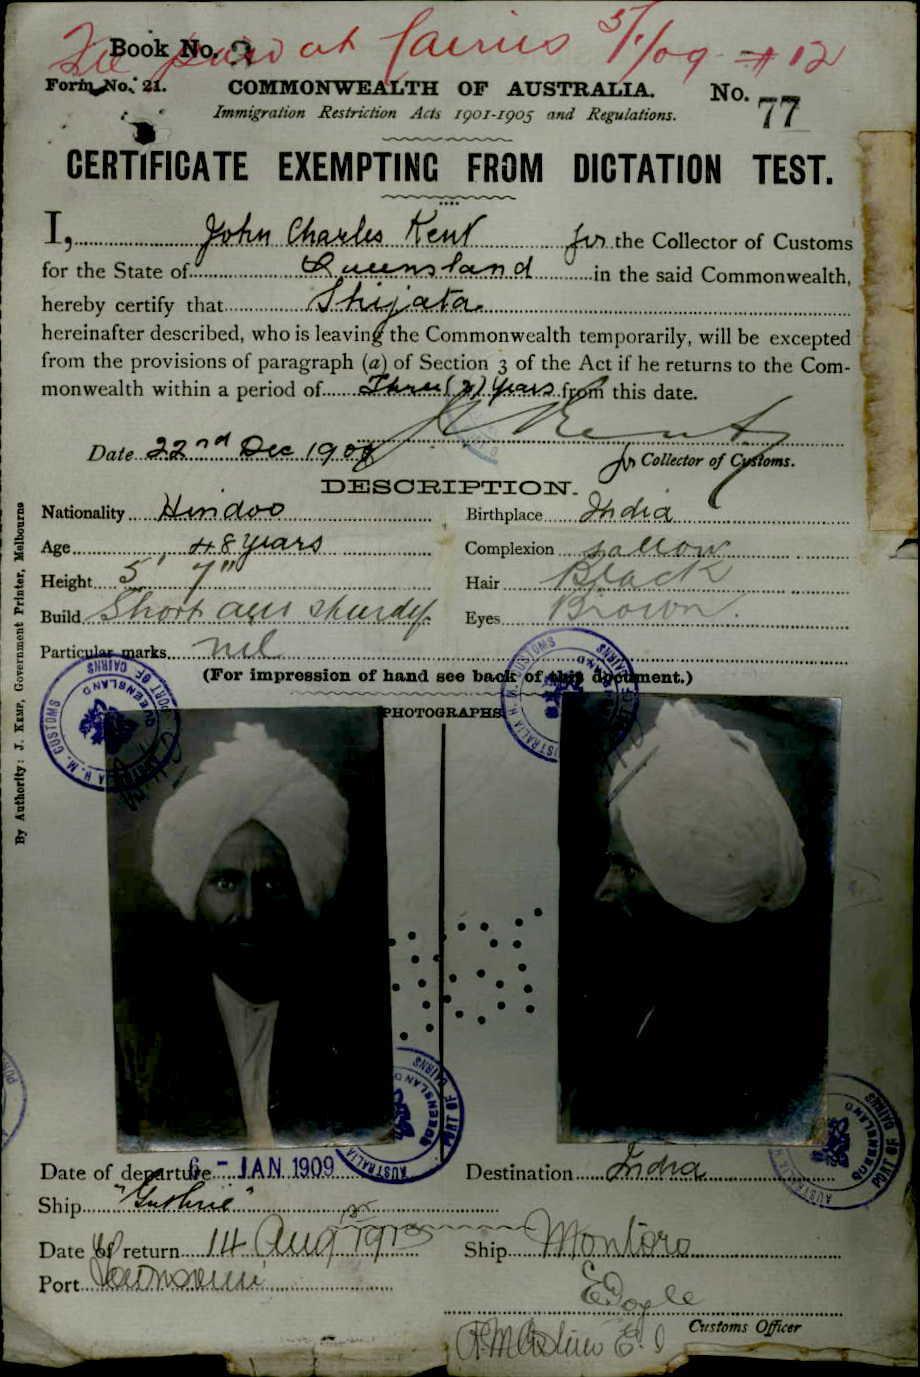 Fee paid at Cairns 5/1/09 # 12
Book No. 2
Form No. 21.
COMMONWEALTH OF AUSTRALIA.
No. 77
Immigration Restriction Acts 1901-1905 and Regulations.
CERTIFICATE EXEMPTING FROM DICTATION TEST.
I, John Charles Kent for the Collector of Customs
for the State of Queensland in the said Commonwealth,
hereby certify that Shijata
hereinafter described, who is leaving the Commonwealth temporarily, will be excepted
from the provisions of paragraph (a) of Section 3 of the Act if he returns to the Com-
monwealth within a period of Three (3) Years from this date.
J C Kent
Date 22nd Dec 1908
for Collector of Customs.
DESCRIPTION.
Nationality Hindoo
Birthplace India
Age 48 years
Complexion sallow
Height 5' 7"
Hair Black
Build Short and sturdy
Eyes Brown.
Particular marks nil
(For impression of hand see back of this document.)
PHOTOGRAPHS
By Authority: J. KEMP, Government Printer, Melbourne
AUSTRALIA H. M. CUSTOMS PORT OF CAIRNS QUEENSLAND
AUSTRALIA H. M. CUSTOMS CAIRNS
AUSTRALIA PORT OF CAIRNS QUEENSLAND
AUSTRALIA PORT OF CAIRNS QUEENSLAND
Date of departure 6 - JAN. 1909
Destination India
Ship "Guthrie"
Date of return 14 Aug 1913
Ship Montoro
Port
EDoyle
Customs Officer